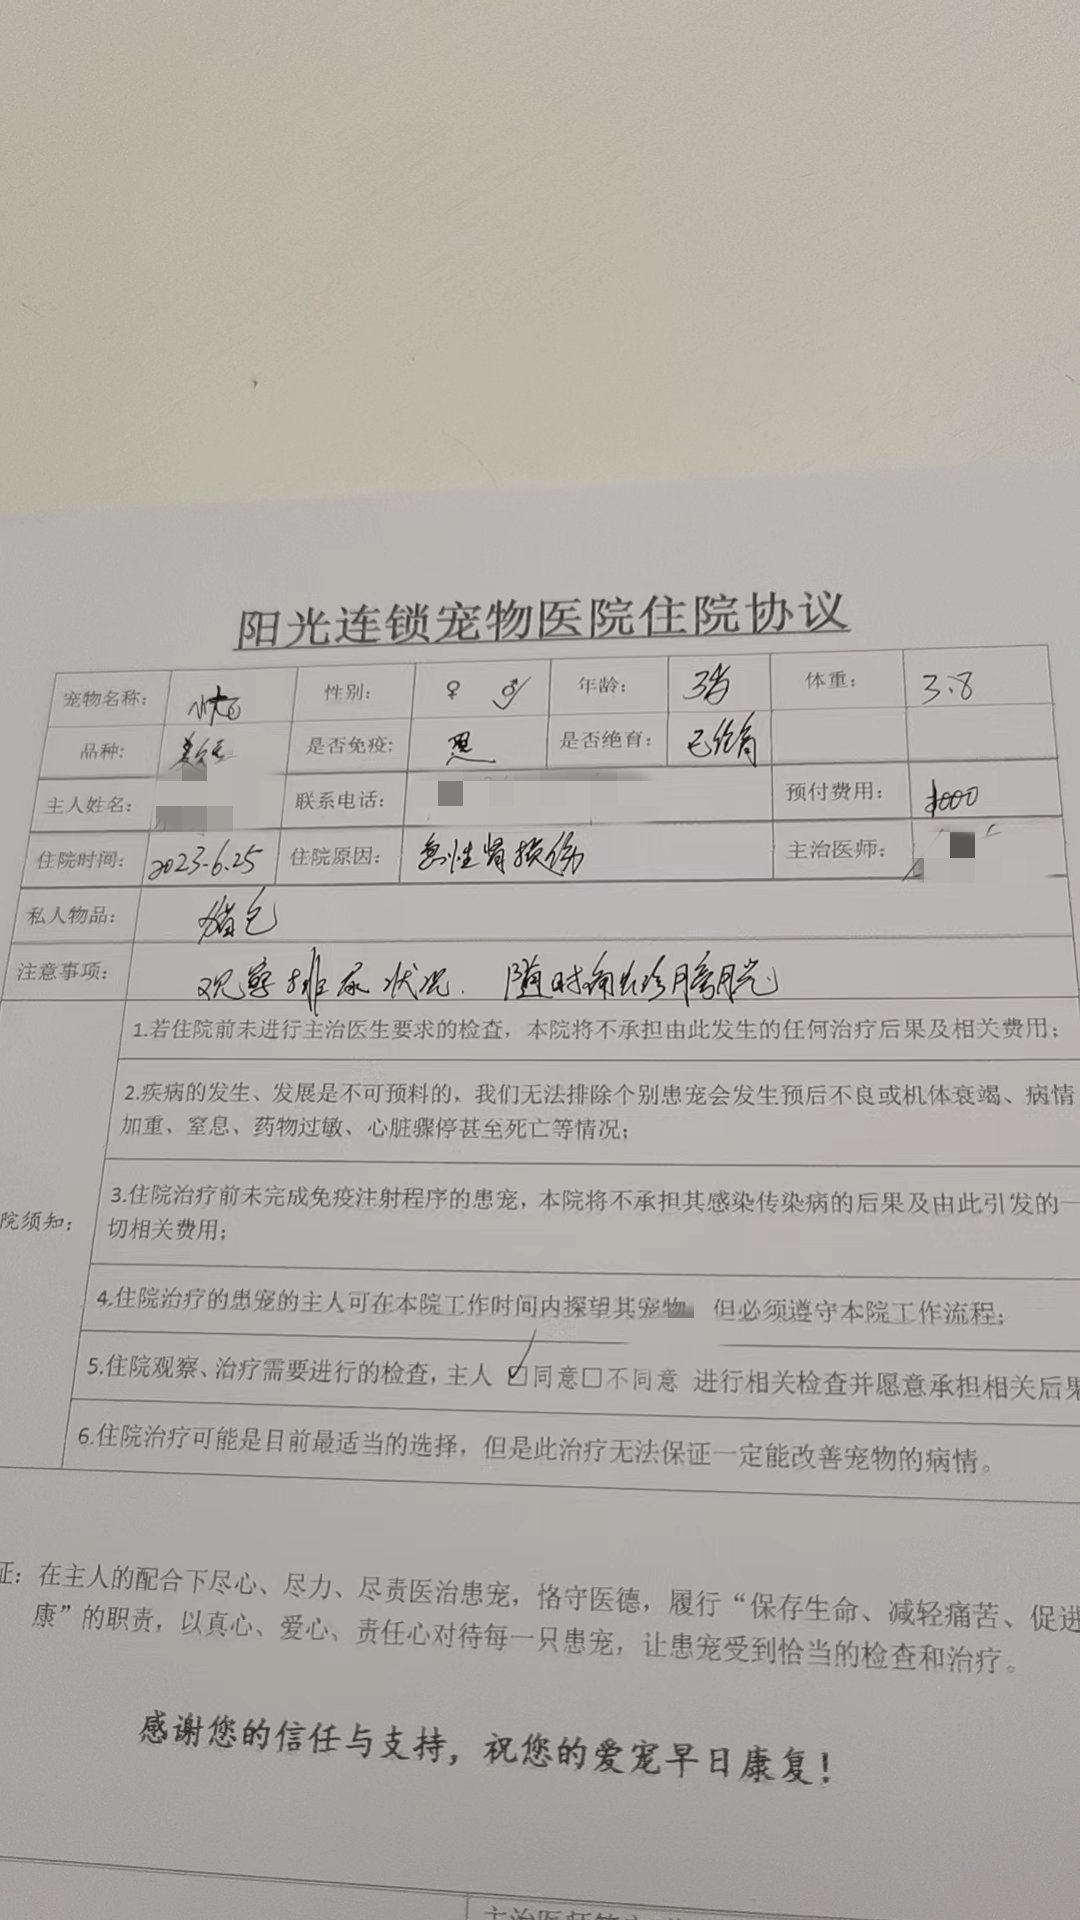 阳光连锁宠物医院住院协议
宠物名称: 性别: ♀ ♂ 年龄: 3岁 体重: 3.8
品种: 是否免疫: 是否绝育: 已绝育
主人姓名: 联系电话: 预付费用:
住院时间: 2023.6.25 住院原因: 急性肾损伤 主治医师:
私人物品: 猫包
注意事项: 观察排尿状况. 随时触诊膀胱
1.若住院前未进行主治医生要求的检查，本院将不承担由此发生的任何治疗后果及相关费用；
2.疾病的发生、发展是不可预料的，我们无法排除个别患宠会发生预后不良或机体衰竭、病情
加重、窒息、药物过敏、心脏骤停甚至死亡等情况；
院须知:
3.住院治疗前未完成免疫注射程序的患宠，本院将不承担其感染传染病的后果及由此引发的一
切相关费用；
4.住院治疗的患宠的主人可在本院工作时间内探望其宠物 但必须遵守本院工作流程；
5.住院观察、治疗需要进行的检查，主人 ☑同意□不同意 进行相关检查并愿意承担相关后果
6.住院治疗可能是目前最适当的选择，但是此治疗无法保证一定能改善宠物的病情。
证：在主人的配合下尽心、尽力、尽责医治患宠，恪守医德，履行“保存生命、减轻痛苦、促进
康”的职责，以真心、爱心、责任心对待每一只患宠，让患宠受到恰当的检查和治疗。
感谢您的信任与支持，祝您的爱宠早日康复！